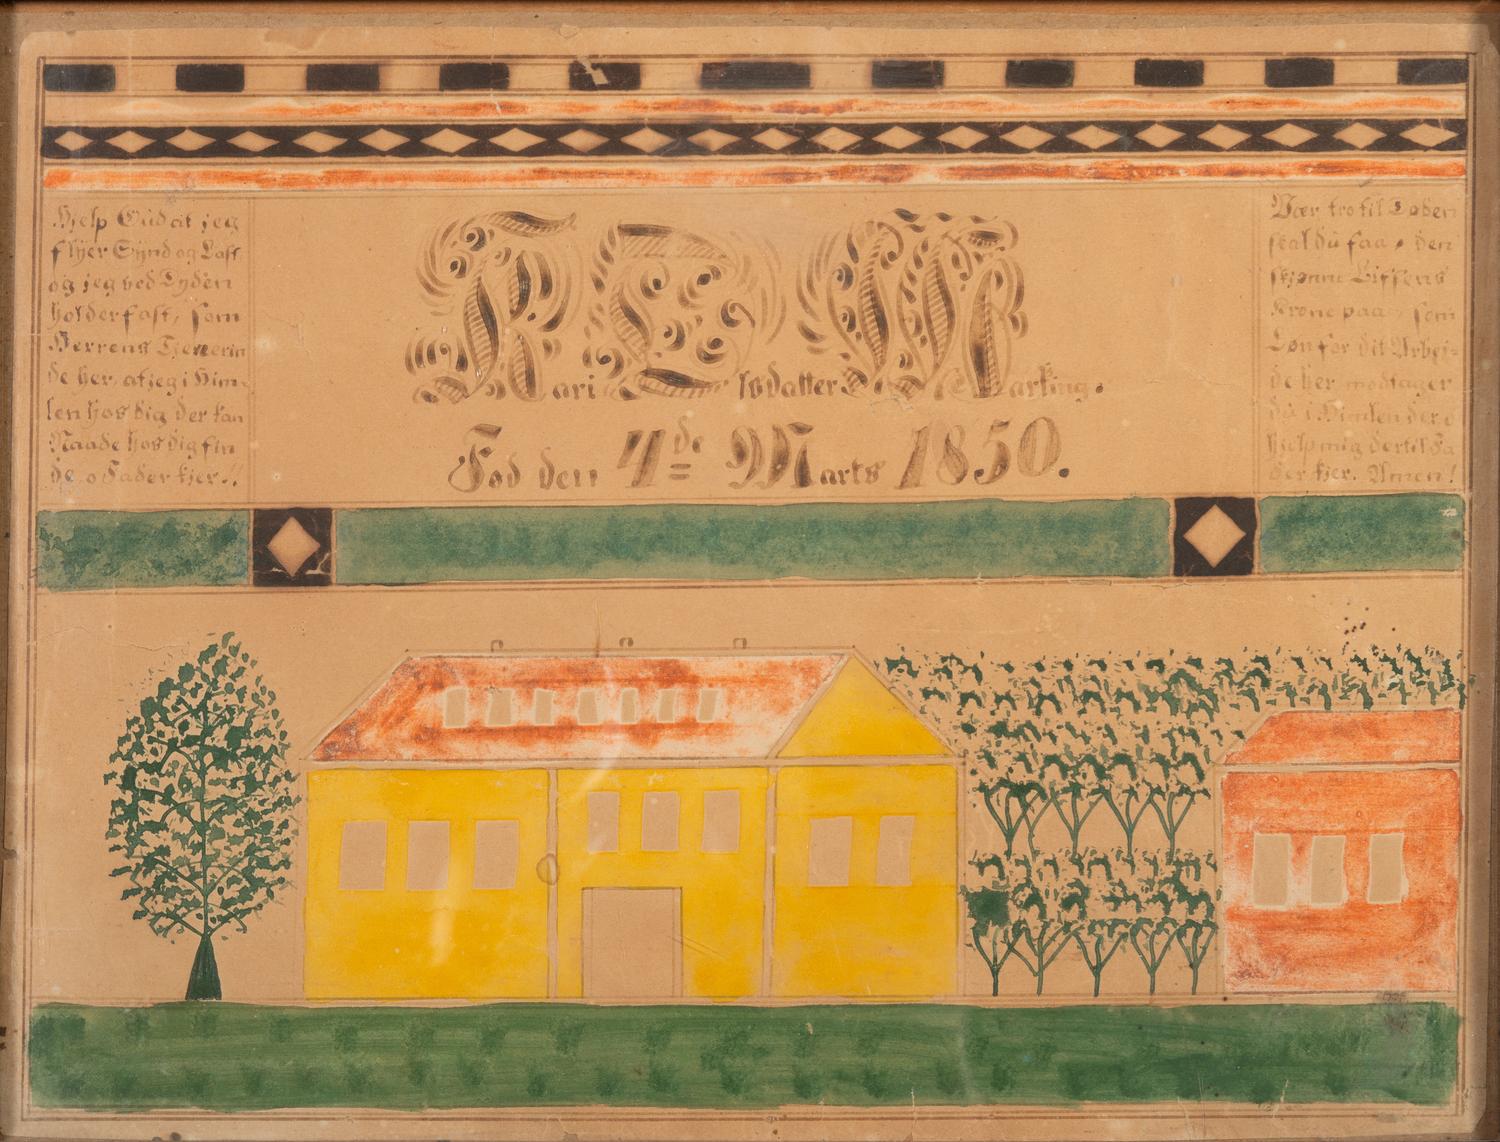 Hjelp Gud at jeg
flÿer Sÿnd og Last
og jeg ved Dÿden
holder fast, som
Herrens Tjenerin
de her, at jeg i Him-
len hos dig der kan
Naade hos dig fin
de o Fader kjer.!!
Kari Olsdatter Marking.
Fød den 4de Marts 1850.
Vær tro til Døden
skal du faa, den
skjønne Liffens
Krone paa, som
Løn for dit Arbei=
de her modtager
du i Himlen der o
hjelp mig dertil Fa
der kjer. Amen!